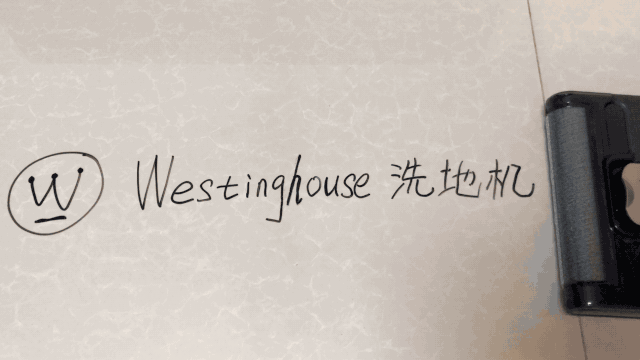 W Westinghouse 洗地机